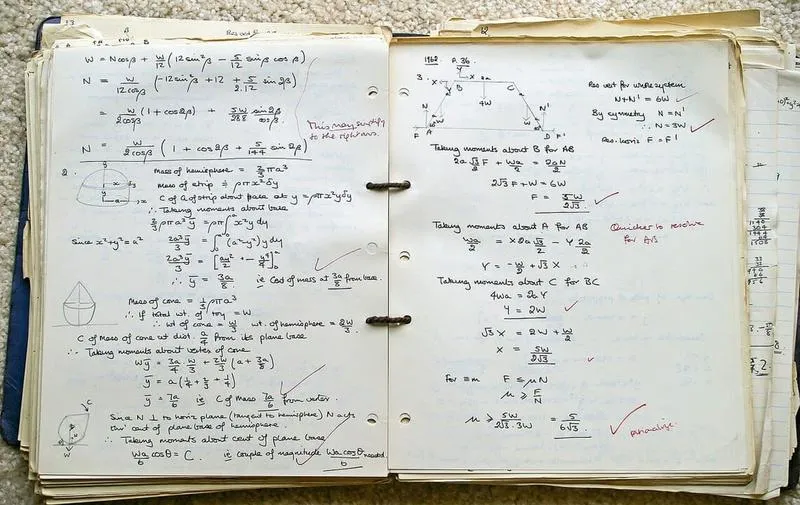 13
W = Ncosβ + W/12 (12sin²β - 5/12 sinβ cosβ)
N = W/12cosβ (-12sin²β + 12 + 5/2.12 sin2β)
= W/2cosβ (1 + cos2β) + 5W/288 sin2β/cosβ
This may simplify
to the right ans.
N = W/2cosβ (1 + cos2β + 5/144 sin2β)
2.
Mass of hemisphere = 2/3 πρa³
Mass of strip = ρπx²δy
C of G of strip about base at y = ρπx²yδy
∴ Taking moments about base
2/3 ρπa³ȳ = ρπ∫₀ᵃ x²y dy
Since x²+y²=a² 2a³ȳ/3 = ∫₀ᵃ (a²-y²)y dy
2a³ȳ/3 = [a²y²/2 - y⁴/4]₀ᵃ
∴ ȳ = 3a/8 ie C of mass at 3a/8 from base.
Mass of cone = 1/3 ρπa³
∴ If total wt. of toy = W
∴ wt of cone = W/3 wt. of hemisphere = 2W/3
C of Mass of cone at dist. a/4 from its plane base
∴ Taking moments about vertex of cone
Wȳ = 3a/4 W/3 + 2W/3 (a + 3a/8)
ȳ = a(1/4 + 2/3 + 1/4)
ȳ = 7a/6 ie C of Mass 7a/6 from vertex.
Since N ⊥ to horiz plane (tangent to hemisphere) N acts
thro' cent of plane base of hemisphere.
∴ Taking moments about cent of plane base
Wa/6 cosθ = C. ie couple of magnitude Wa cosθ/6 needed.
1962 P. 36
3.
Res vert for whole system
N+N' = 6W
By symmetry N = N'
∴ N = 3W
Res. horiz F = F'
Taking moments about B for AB
2a√3/2 F + Wa/2 = 2aN/2
2√3F + W = 6W
F = 5W/2√3
Taking moments about A for AB
Quicker to resolve
for AB
Wa/2 = X2a√3/2 - Y 2a/2
Y = -W/2 + √3 X
Taking moments about C for BC
4Wa = 2aY
Y = 2W
√3X = 2W + W/2
X = 5W/2√3
For ≡m F ≤ μN
μ ≥ F/N
μ ≥ 5W/2√3.3W = 5/6√3
rationalize.